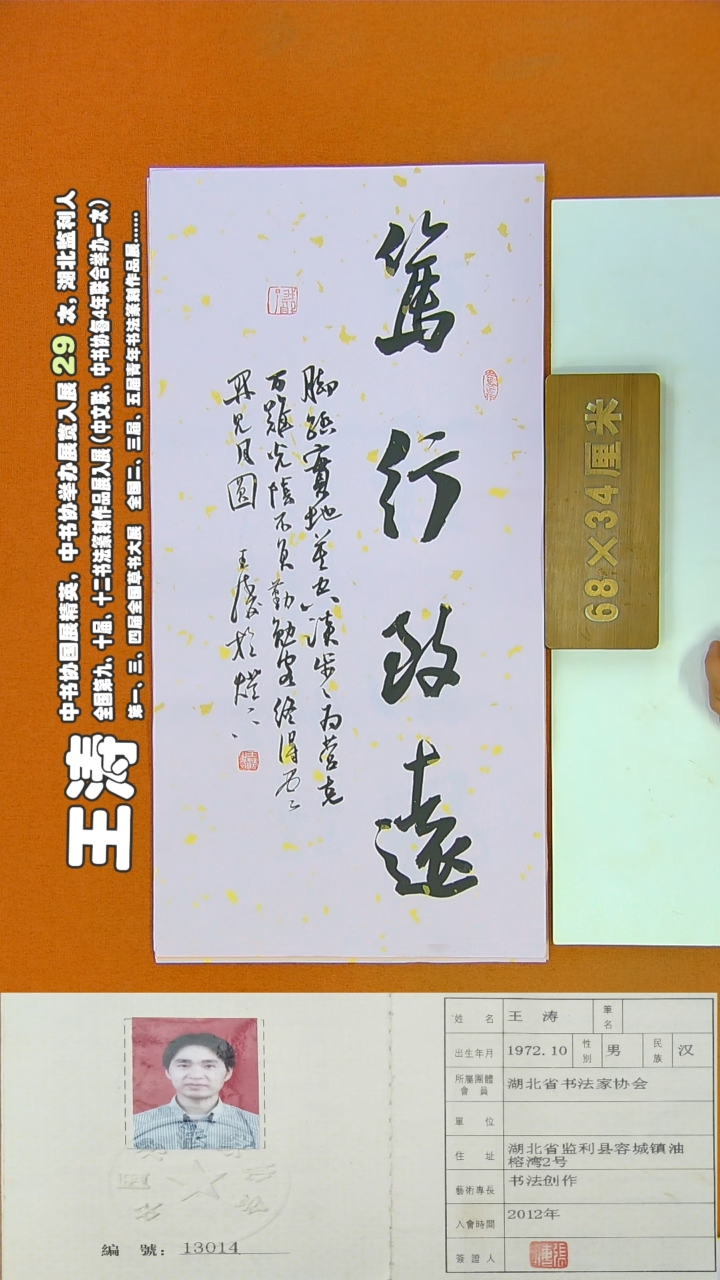 王涛
中书协国展精英，中书协举办展赛入展 29 次, 湖北监利人
全国第九、十届、十二书法篆刻作品展入展（中文联、中书协暨4年联合举办一次）
第一、三、四届全国草书大展 全国二、三届、五届青年书法篆刻作品展......
篤行致遠
脚踏實地莫空談步〻为营克
百難光陰不負勤勉客终得雲
開見月圓 王濤於燈下
68×34厘米
姓名 王涛 筆名
出生年月 1972.10 性別 男 民族 汉
所屬團體會員 湖北省书法家协会
單位
住址 湖北省监利县容城镇油
榕湾2号
藝術專長 书法创作
入會時間 2012年
簽證人
編號：13014